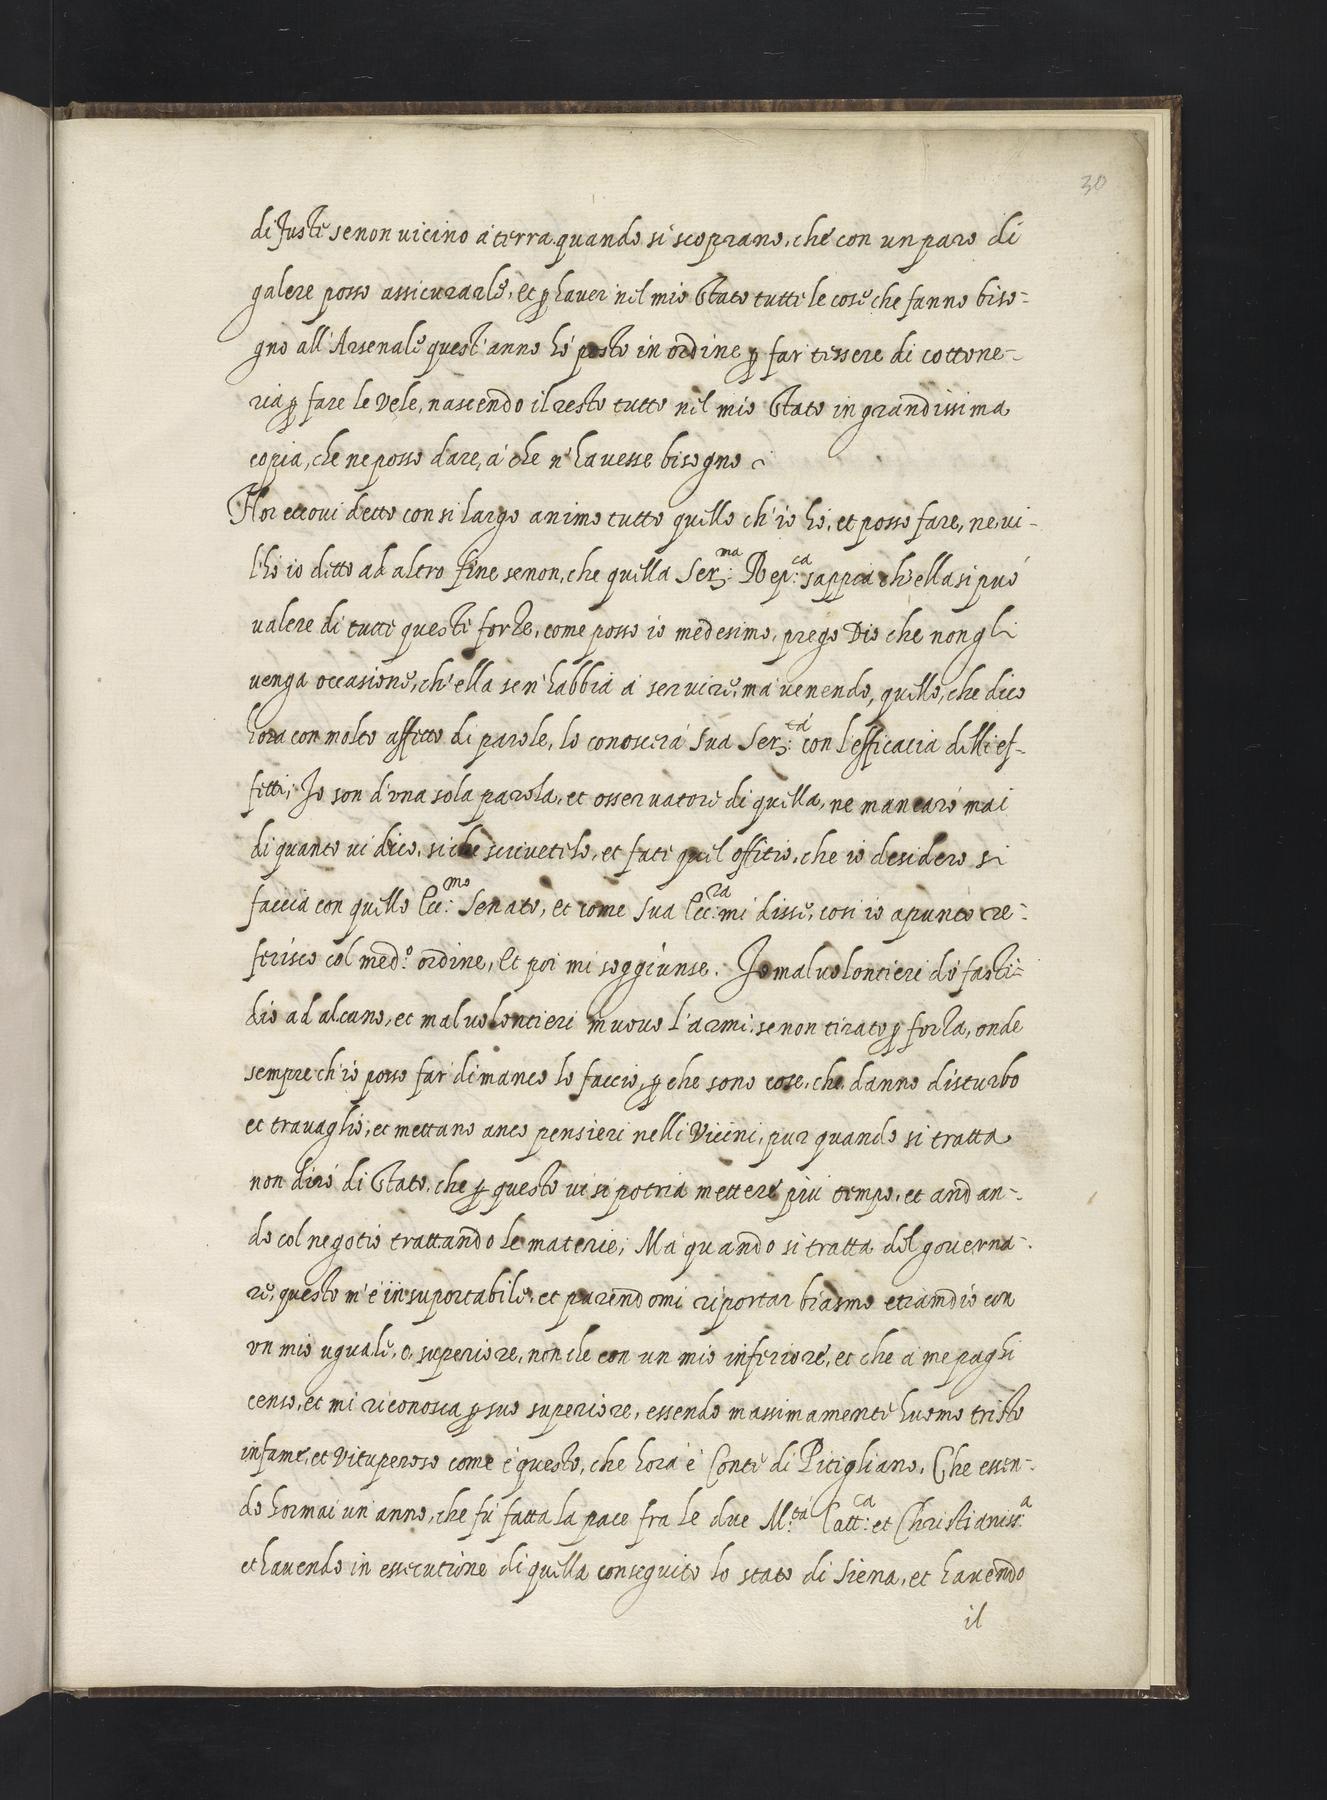 30
di fuste se non vicino à terra quando si scoprano, che con un paro di
galere posso assicurarle, et p haver nel mio Stato tutte le cose che fanno biso-
gno all'Arsenale quest'anno hò posto in ordine p far tessere di cottone-
ria p fare le vele, nascendo il resto tutto nel mio Stato in grandissima
copia, che ne posso dare, à che n'havesse bisogno
Hor eccovi detto con si largo animo tutto quello ch'io hò, et posso fare, ne vi
l'hò io detto ad altro fine se non, che quella Ser.ma Rep.ca sappia ch'ella si può
valere di tutte queste forze, come posso io medesimo, prego Dio che non gli
venga occasione, ch'ella se n'habbia à servire, ma venendo, quello, che dico
hora con molto affetto di parole, lo conoscerà sua Ser.tà con l'efficacia delli ef-
fetti; Io son d'una sola parola, et osservatore di quella, ne mancarò mai
di quanto vi dico, si che scrivetelo, et fate quel offitio, che io desidero si
faccia con quello Ecc.mo Senato, et come sua Ecc.za mi disse, così io apunto re-
ferisco col med.o ordine, Et poi mi soggiunse. Io mal volontieri dò fasti-
dio ad alcuno, et mal volontieri muovo l'armi se non tirato p forza, onde
sempre ch'io posso far di manco lo faccio, p che sono cose, che danno disturbo
et travaglio, et mettano anco pensieri nelli Vicini, pur quando si tratta
non dirò di Stato, che p questo vi si potria mettere più tempo, et andan-
do col negotio trattando le materie; Ma quando si tratta del governa-
re, questo m'è insuportabile, et parendomi riportar biasmo etiamdio con
un mio uguale, o, superiore, non che con un mio inferiore, et che à me paghi
censo, et mi riconosca p suo superiore, essendo massimamente huomo tristo
infame, et vituperoso come è questo, che hora è Conte di Pitigliano, Che essen-
do hormai un'anno, che fù fatta la pace fra le due M.tà Catt.ca et Christianiss.a
et havendo in essecutione di quella conseguito lo stato di Siena, et havendo
il